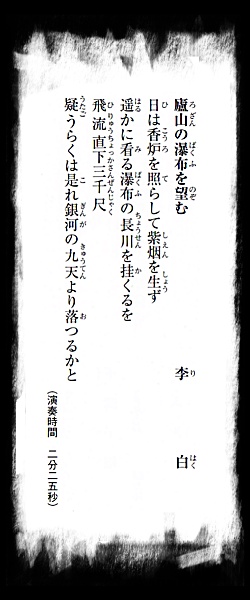 廬山の瀑布を望む
李白
日は香炉を照らして紫烟を生ず
遥かに看る瀑布の長川を挂くるを
飛流直下三千尺
疑うらくは是れ銀河の九天より落つるかと
(演奏時間 二分二五秒)